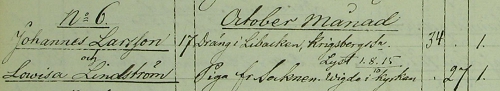 No 6. October Månad
Johannes Larsson 17 Dräng i Libacken, Krigsberg 34 . 1.
och Lyst 1.8.15
Lowisa Lindström Piga fr Socknen. Wigda i Kyrkan . 27 1.